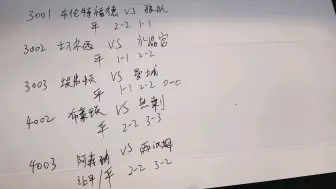 3001 布伦特福德 VS 狼队
平 2-2 1-1
3002 切尔西 VS 水晶宫
平 1-1 2-2
3003 埃弗顿 VS 曼城
平 1-1 2-2 0-0
4002 布莱顿 VS 热刺
平 2-2 3-3
4003 阿森纳 VS 西汉姆
让平/平 2-2 3-2